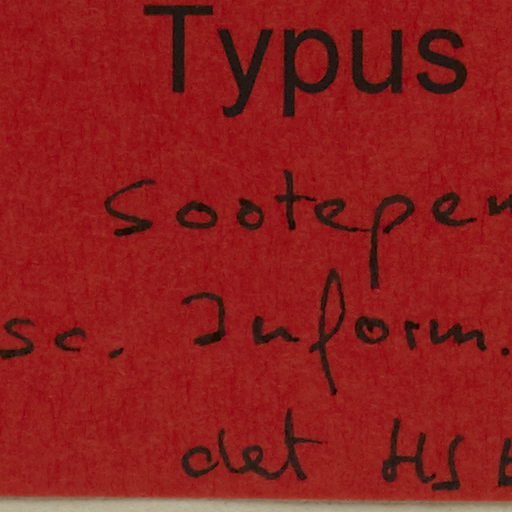 Typus
Sootepen
sc. Inform.
det HS